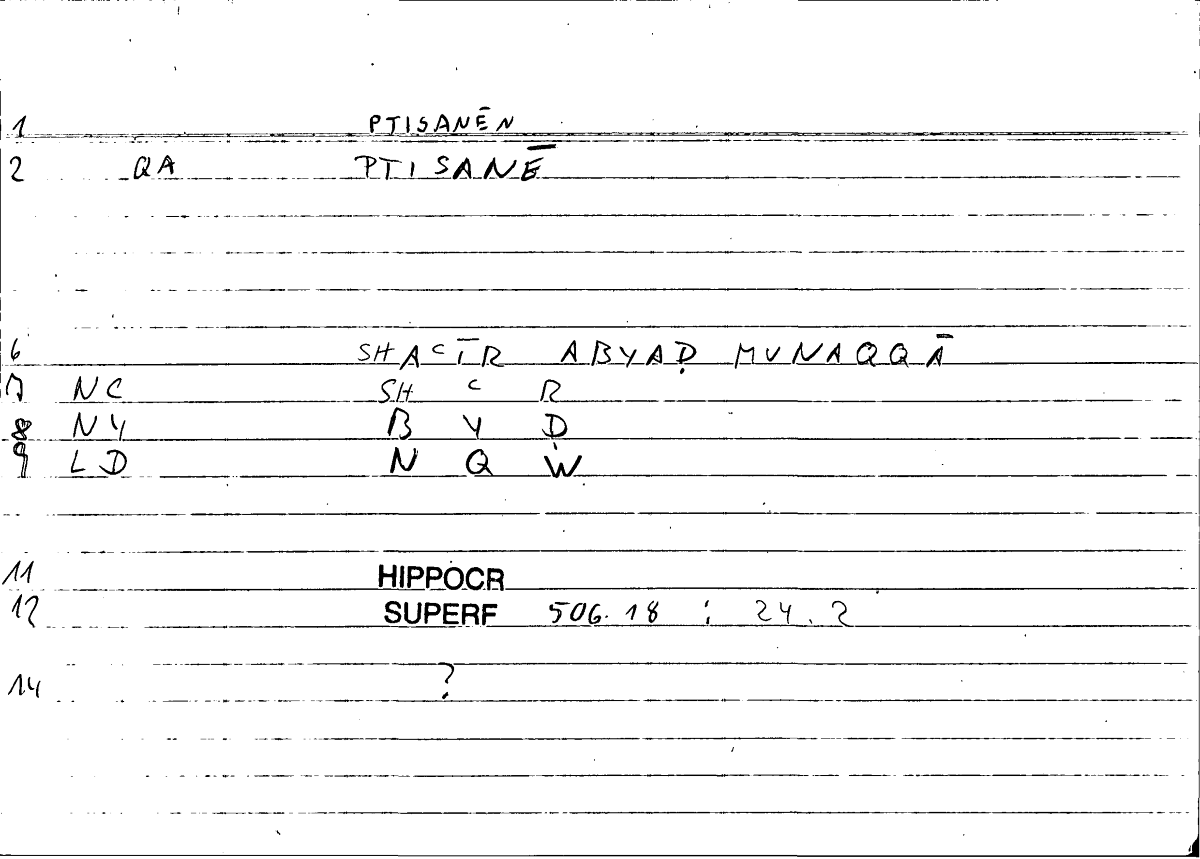 1 PTISANĒN
2 QA PTISANĒ
6 SHAᶜĪR ABYAḌ MUNAQQĀ
7 NC SH ᶜ R
8 NY B Y Ḍ
9 LD N Q W
11 HIPPOCR
12 SUPERF 506.18 : 24.2
14 ?